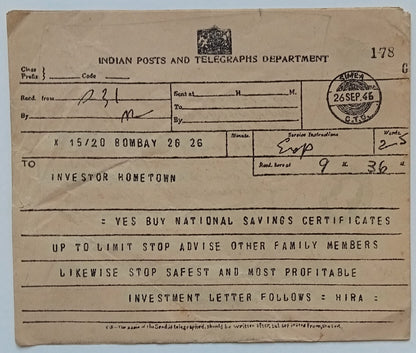 INDIAN POSTS AND TELEGRAPHS DEPARTMENT
178
Class
Prefix
Code
Recd. from
By
Sent at H. M.
To
By
SIMLA
26 SEP. 46
C.T.O.
X 15/20 BOMBAY 26 26
Minute.
Service Instructions
Words
TO
Recd. here at 9 H. 36 M.
INVESTOR HOMETOWN
= YES BUY NATIONAL SAVINGS CERTIFICATES
UP TO LIMIT STOP ADVISE OTHER FAMILY MEMBERS
LIKEWISE STOP SAFEST AND MOST PROFITABLE
INVESTMENT LETTER FOLLOWS = HIRA =